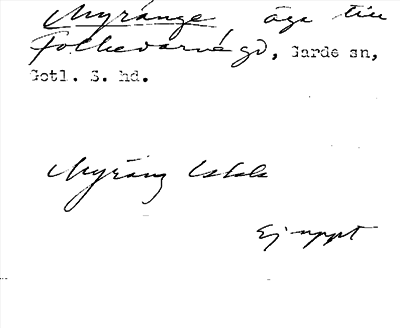 Myränge äga till
Folkedarve gd, Garde sn,
Gotl. S. hd.
Myräng
Ej uppt